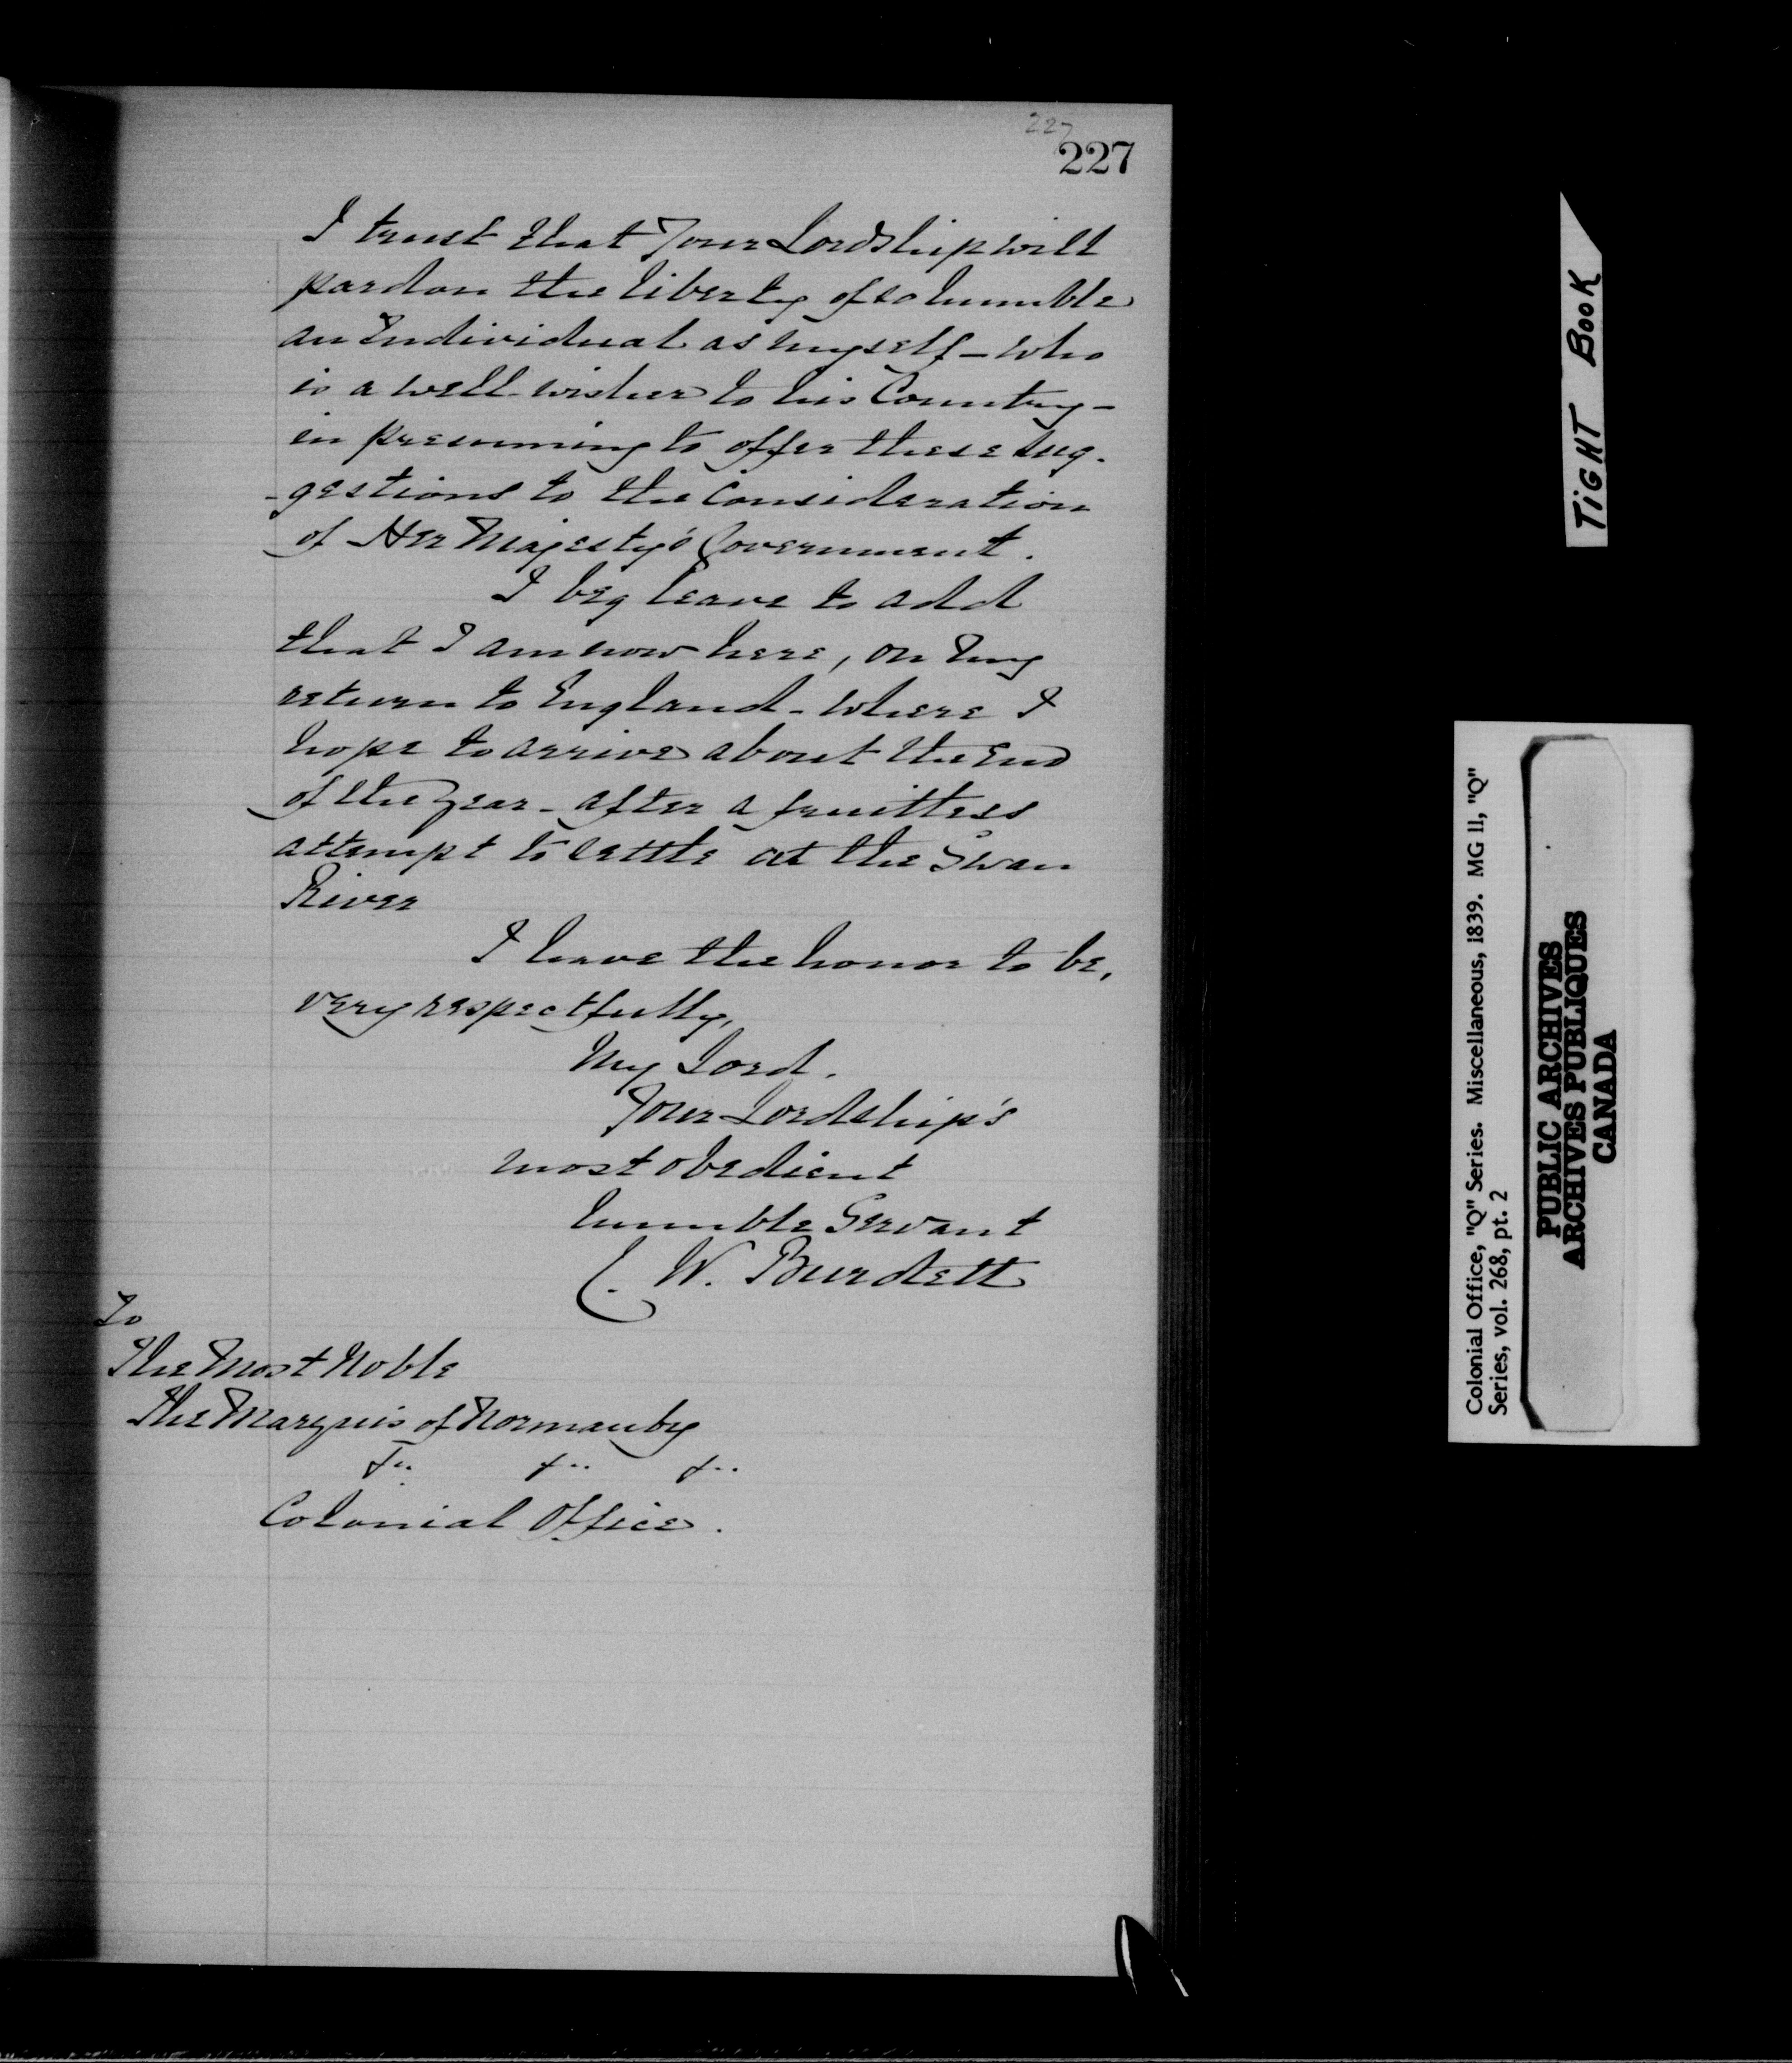 227
227
I trust that Your Lordship will
pardon the liberty of so humble
an Individual as myself - who
is a well-wisher to his Country -
in presuming to offer these sug-
-gestions to the consideration
of Her Majesty's Government.
I beg leave to add
that I am now here, on my
return to England - where I
hope to arrive about the End
of the year - after a fruitless
attempt to settle at the Swan
River
I have the honor to be,
very respectfully,
My Lord.
Your Lordship's
most obedient
humble Servant
C. W. Burdett
To
The Most Noble
The Marquis of Normanby
&c. &c. &c.
Colonial Office.
TIGHT BOOK
Colonial Office, "Q" Series. Miscellaneous, 1839. MG 11, "Q"
Series, vol. 268, pt. 2
PUBLIC ARCHIVES
ARCHIVES PUBLIQUES
CANADA